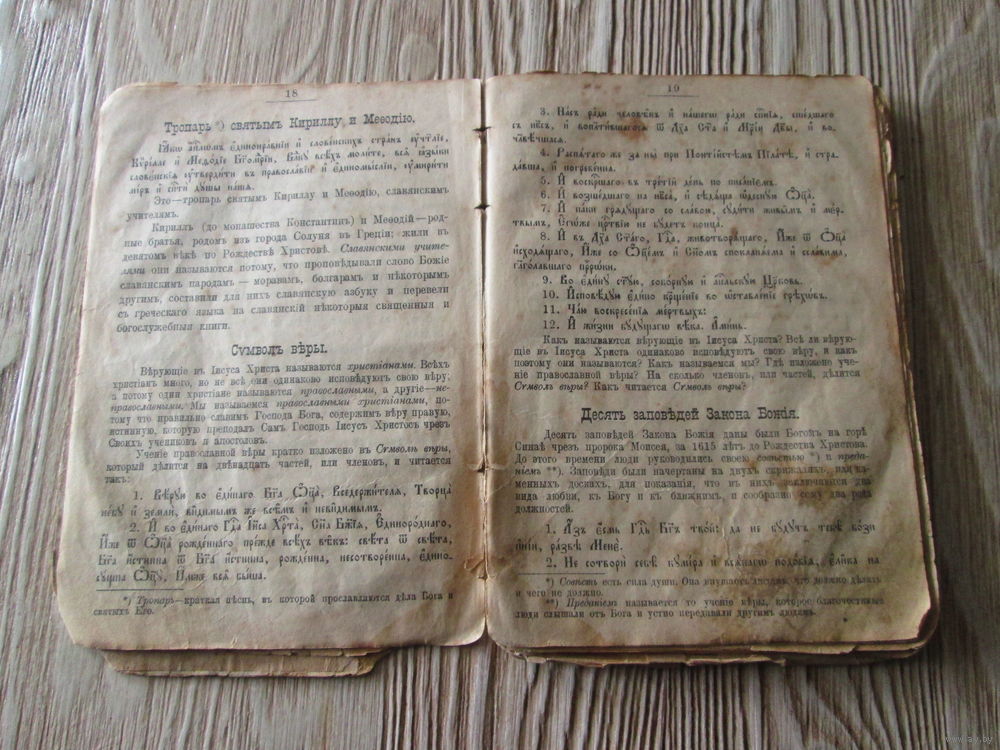 18
Тропарь *) святымъ Кириллу и Меѳодію.
Ꙗкѡ апⷭ҇лѡмъ єдинонравніи и словенскихъ странъ ѹчт҃лїе,
Кѷрїлле и Меѳодїе Бг҃омⷣрїи, Влⷣкꙋ всѣхъ молите, всѧ ꙗзыки
словенскїѧ ѹтвердити въ православїи и єдиномыслїи, ѹмирити
мїръ и сп҃сти дꙋшы нашѧ.
Это—тропарь святымъ Кириллу и Меѳодію, славянскимъ
учителямъ.
Кириллъ (до монашества Константинъ) и Меѳодій—род-
ные братья, родомъ изъ города Солуня въ Греціи; жили въ
девятомъ вѣкѣ по Рождествѣ Христовѣ. Славянскими учите-
лями они называются потому, что проповѣдывали слово Божіе
славянскимъ народамъ — моравамъ, болгарамъ и нѣкоторымъ
другимъ, составили для нихъ славянскую азбуку и перевели
съ греческаго языка на славянскій нѣкоторыя священныя и
богослужебныя книги.
Сѵмволъ вѣры.
Вѣрующіе въ Іисуса Христа называются христіанами. Всѣхъ
христіанъ много, но не всѣ они одинаково исповѣдуютъ свою вѣру;
а потому одни христіане называются православными, а другіе—не-
православными. Мы называемся православными христіанами, по-
тому что правильно славимъ Господа Бога, содержимъ вѣру правую,
истинную, которую преподалъ Самъ Господь Іисусъ Христосъ чрезъ
Своихъ учениковъ и апостоловъ.
Ученіе православной вѣры кратко изложено въ Сѵмволѣ вѣры,
который дѣлится на двѣнадцать частей, или членовъ, и читается
такъ:
1. Вѣрꙋю во єдинаго Бг҃а Ѻц҃а, Вседержителѧ, Творца
небꙋ и земли, видимымъ же всѣмъ и невидимымъ.
2. И во єдинаго Гдⷭ҇а Іи҃са Хрⷭ҇та, Сн҃а Бж҃їѧ, Єдинороднаго,
Иже ѿ Ѻц҃а рожденнаго прежде всѣхъ вѣкъ: свѣта ѿ свѣта,
Бг҃а истинна ѿ Бг҃а истинна, рожденна, несотворенна, єдино-
сꙋщна Ѻц҃ꙋ, Имже всѧ быша.
*) Тропарь—краткая пѣснь, въ которой прославляются дѣла Бога и
святыхъ Его.
19
3. Насъ ради человѣкъ и нашегѡ ради сп҃сенїѧ, сшедшаго
съ нб҃съ, и воплотившагосѧ ѿ Дх҃а Ст҃а и Мр҃їи Дв҃ы, и во-
члвѣчшасѧ.
4. Распѧтаго же за ны при Понтійстѣмъ Пїлатѣ, и стра-
давша, и погребенна.
5. И воскрⷭ҇шаго въ третїй день по писанїємъ.
6. И возшедшаго на нб҃са, и сѣдѧща ѡдеснꙋю Ѻц҃а.
7. И паки грѧдꙋщаго со славою, сꙋдити живымъ и мер-
твымъ, Єгѡже црⷭ҇твїю не бꙋдетъ конца.
8. И въ Дх҃а Ст҃аго, Гдⷭ҇а, животворѧщаго, Иже ѿ Ѻц҃а
исходѧщаго, Иже со Ѻц҃емъ и Сн҃омъ спокланѧема и сславима,
гл҃голавшаго прⷪ҇роки.
9. Во єдинꙋ ст҃ꙋю, соборнꙋю и апⷭ҇льскꙋю Цр҃ковь.
10. Исповѣдꙋю єдино крⷭ҇щенїе во ѡставленїе грѣхѡвъ.
11. Чаю воскресенїѧ мертвыхъ:
12. И жизни бꙋдꙋщагѡ вѣка. Аминь.
Какъ называются вѣрующіе въ Іисуса Христа? Всѣ ли вѣрую-
щіе въ Іисуса Христа одинаково исповѣдуютъ свою вѣру, и какъ
поэтому они называются? Какъ называемся мы? Гдѣ изложено уче-
ніе православной вѣры? На сколько членовъ, или частей, дѣлится
Сѵмволъ вѣры? Какъ читается Сѵмволъ вѣры?
Десять заповѣдей Закона Божія.
Десять заповѣдей Закона Божія даны были Богомъ на горѣ
Синаѣ чрезъ пророка Моисея, за 1615 лѣтъ до Рождества Христова.
До этого времени люди руководились своею совѣстью *) и преда-
ніемъ **). Заповѣди были начертаны на двухъ скрижаляхъ, или ка-
менныхъ доскахъ, для показанія, что въ нихъ заключаются два
вида любви, къ Богу и къ ближнимъ, и сообразно сему два рода
должностей.
1. Азъ єсмь Гдⷭ҇ь Бг҃ъ твой: да не бꙋдꙋтъ тебѣ бози
иніи, развѣ Мене.
2. Не сотвори себѣ кꙋмира и всѧкагѡ подобїѧ, єлика на
*) Совѣсть есть сила души. Она внушаетъ людямъ, что должно дѣлать
и чего не должно.
**) Преданіемъ называется то ученіе вѣры, которое благочестивые
люди слышали отъ Бога и устно передавали другимъ людямъ.
www.ay.by